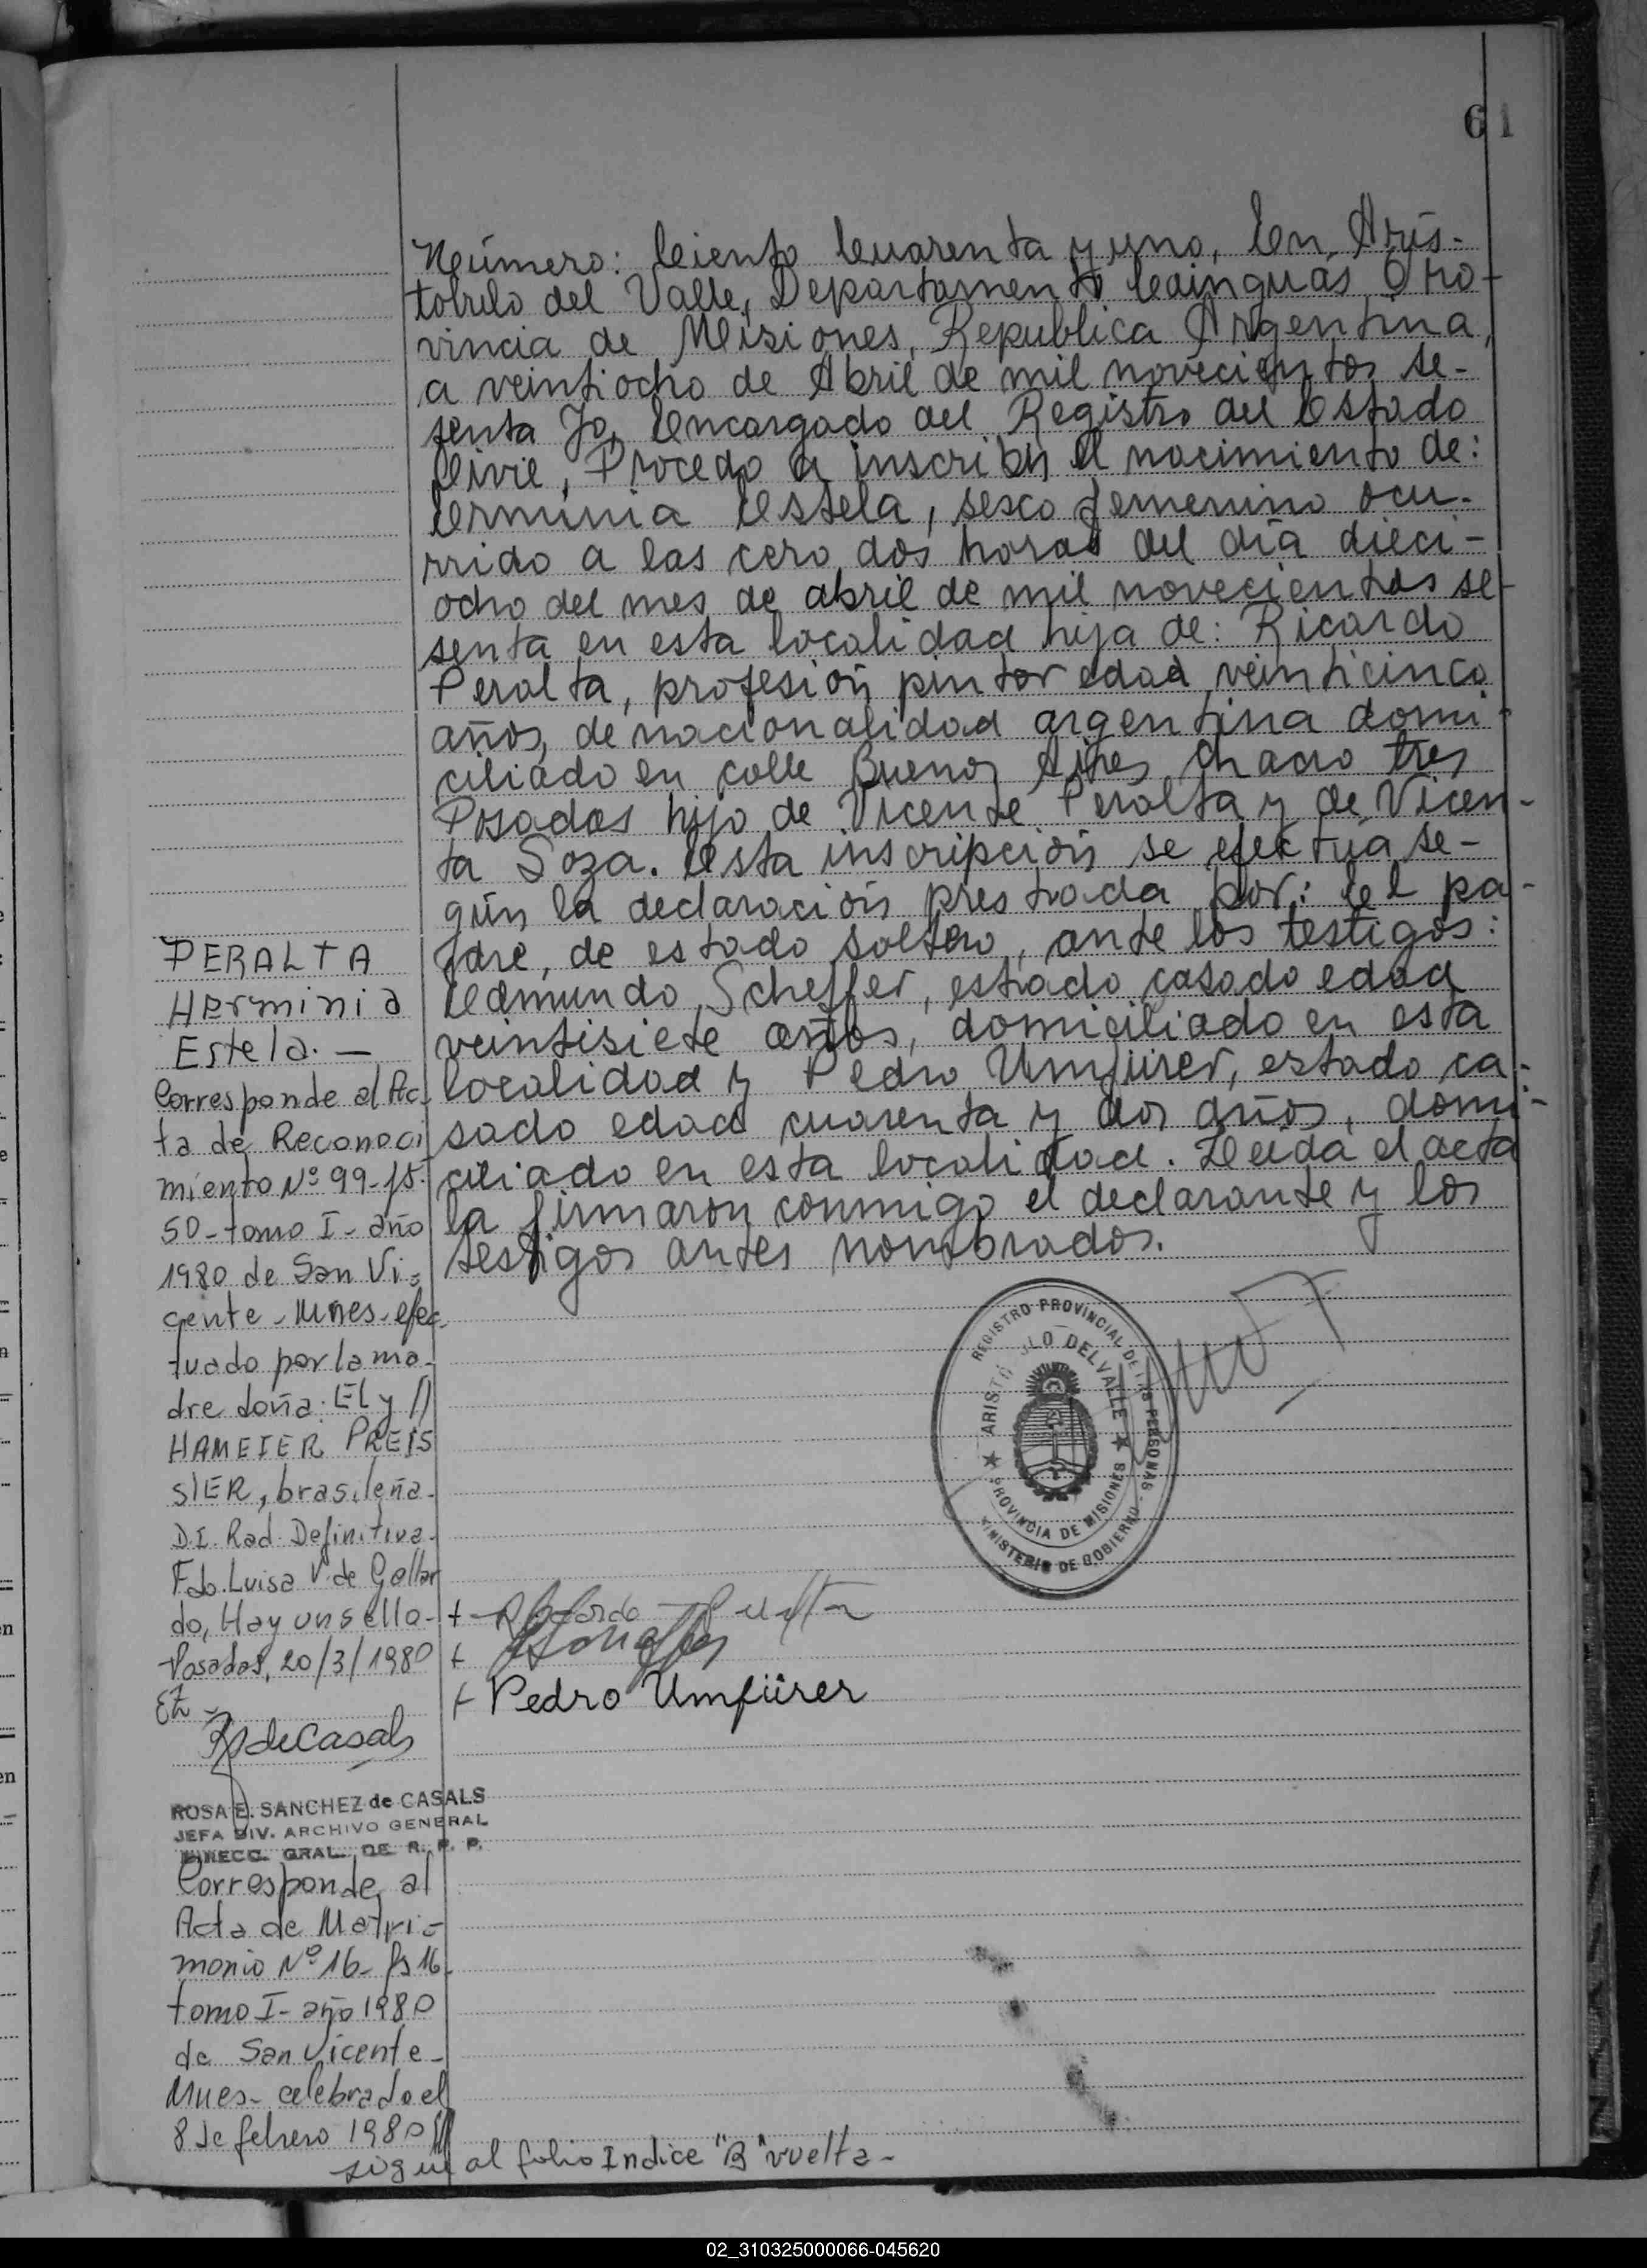 61
Número: Ciento Cuarenta y uno, En Aris-
tobulo del Valle, Departamento Cainguás, Pro-
vincia de Misiones, Republica Argentina,
a veintiocho de Abril de mil novecientos se-
senta Yo, Encargado del Registro del Estado
Civil, Procedo a inscribir el nacimiento de:
Erminia Estela, sexo femenino ocu-
rrido a las cero dos horas del día dieci-
ocho del mes de abril de mil novecientos se-
senta en esta localidad hija de: Ricardo
Peralta, profesión pintor edad veinticinco
años, de nacionalidad argentina domi-
ciliado en calle Buenos Aires Chacra tres
Posadas hijo de Vicente Peralta y de Vicen-
ta Soza. Esta inscripción se efectúa se-
gún la declaración prestada por: el pa-
dre, de estado soltero, ante los testigos:
Edmundo Scheffer, estado casado edad
veintisiete años, domiciliado en esta
localidad y Pedro Umfürer, estado ca-
sado edad cuarenta y dos años, domi-
ciliado en esta localidad. Leída el acta
la firmaron conmigo el declarante y los
testigos antes nombrados.
PERALTA
Herminia
Estela. —
Corresponde al Ac-
ta de Reconoci
miento Nº 99-fs.
50-tomo I-año
1980 de San Vi-
cente-Mnes-efec-
tuado por la ma-
dre doña: Elly
HAMEIER PREIS
SlER, brasileña.
D.I. Rad. Definitiva-
Fdo. Luisa V. de Gallar
do, Hay un sello-
Posadas, 20/3/1980
RdeCasals
ROSA E. SANCHEZ de CASALS
JEFA DIV. ARCHIVO GENERAL
DIRECC. GRAL. DE R. P. P.
Corresponde al
Acta de Matri-
monio Nº 16- fs 16-
tomo I-año 1980
de San Vicente-
Mnes- celebrado el
8 de febrero 1980
sigue al folio Indice "B" vuelta-
REGISTRO PROVINCIAL DE LAS PERSONAS
ARISTÓ ULO DEL VALLE
PROVINCIA DE MISIONES
MINISTERIO DE GOBIERNO
+ Ricardo Peralta
+
+ Pedro Umfürer
02_310325000066-045620